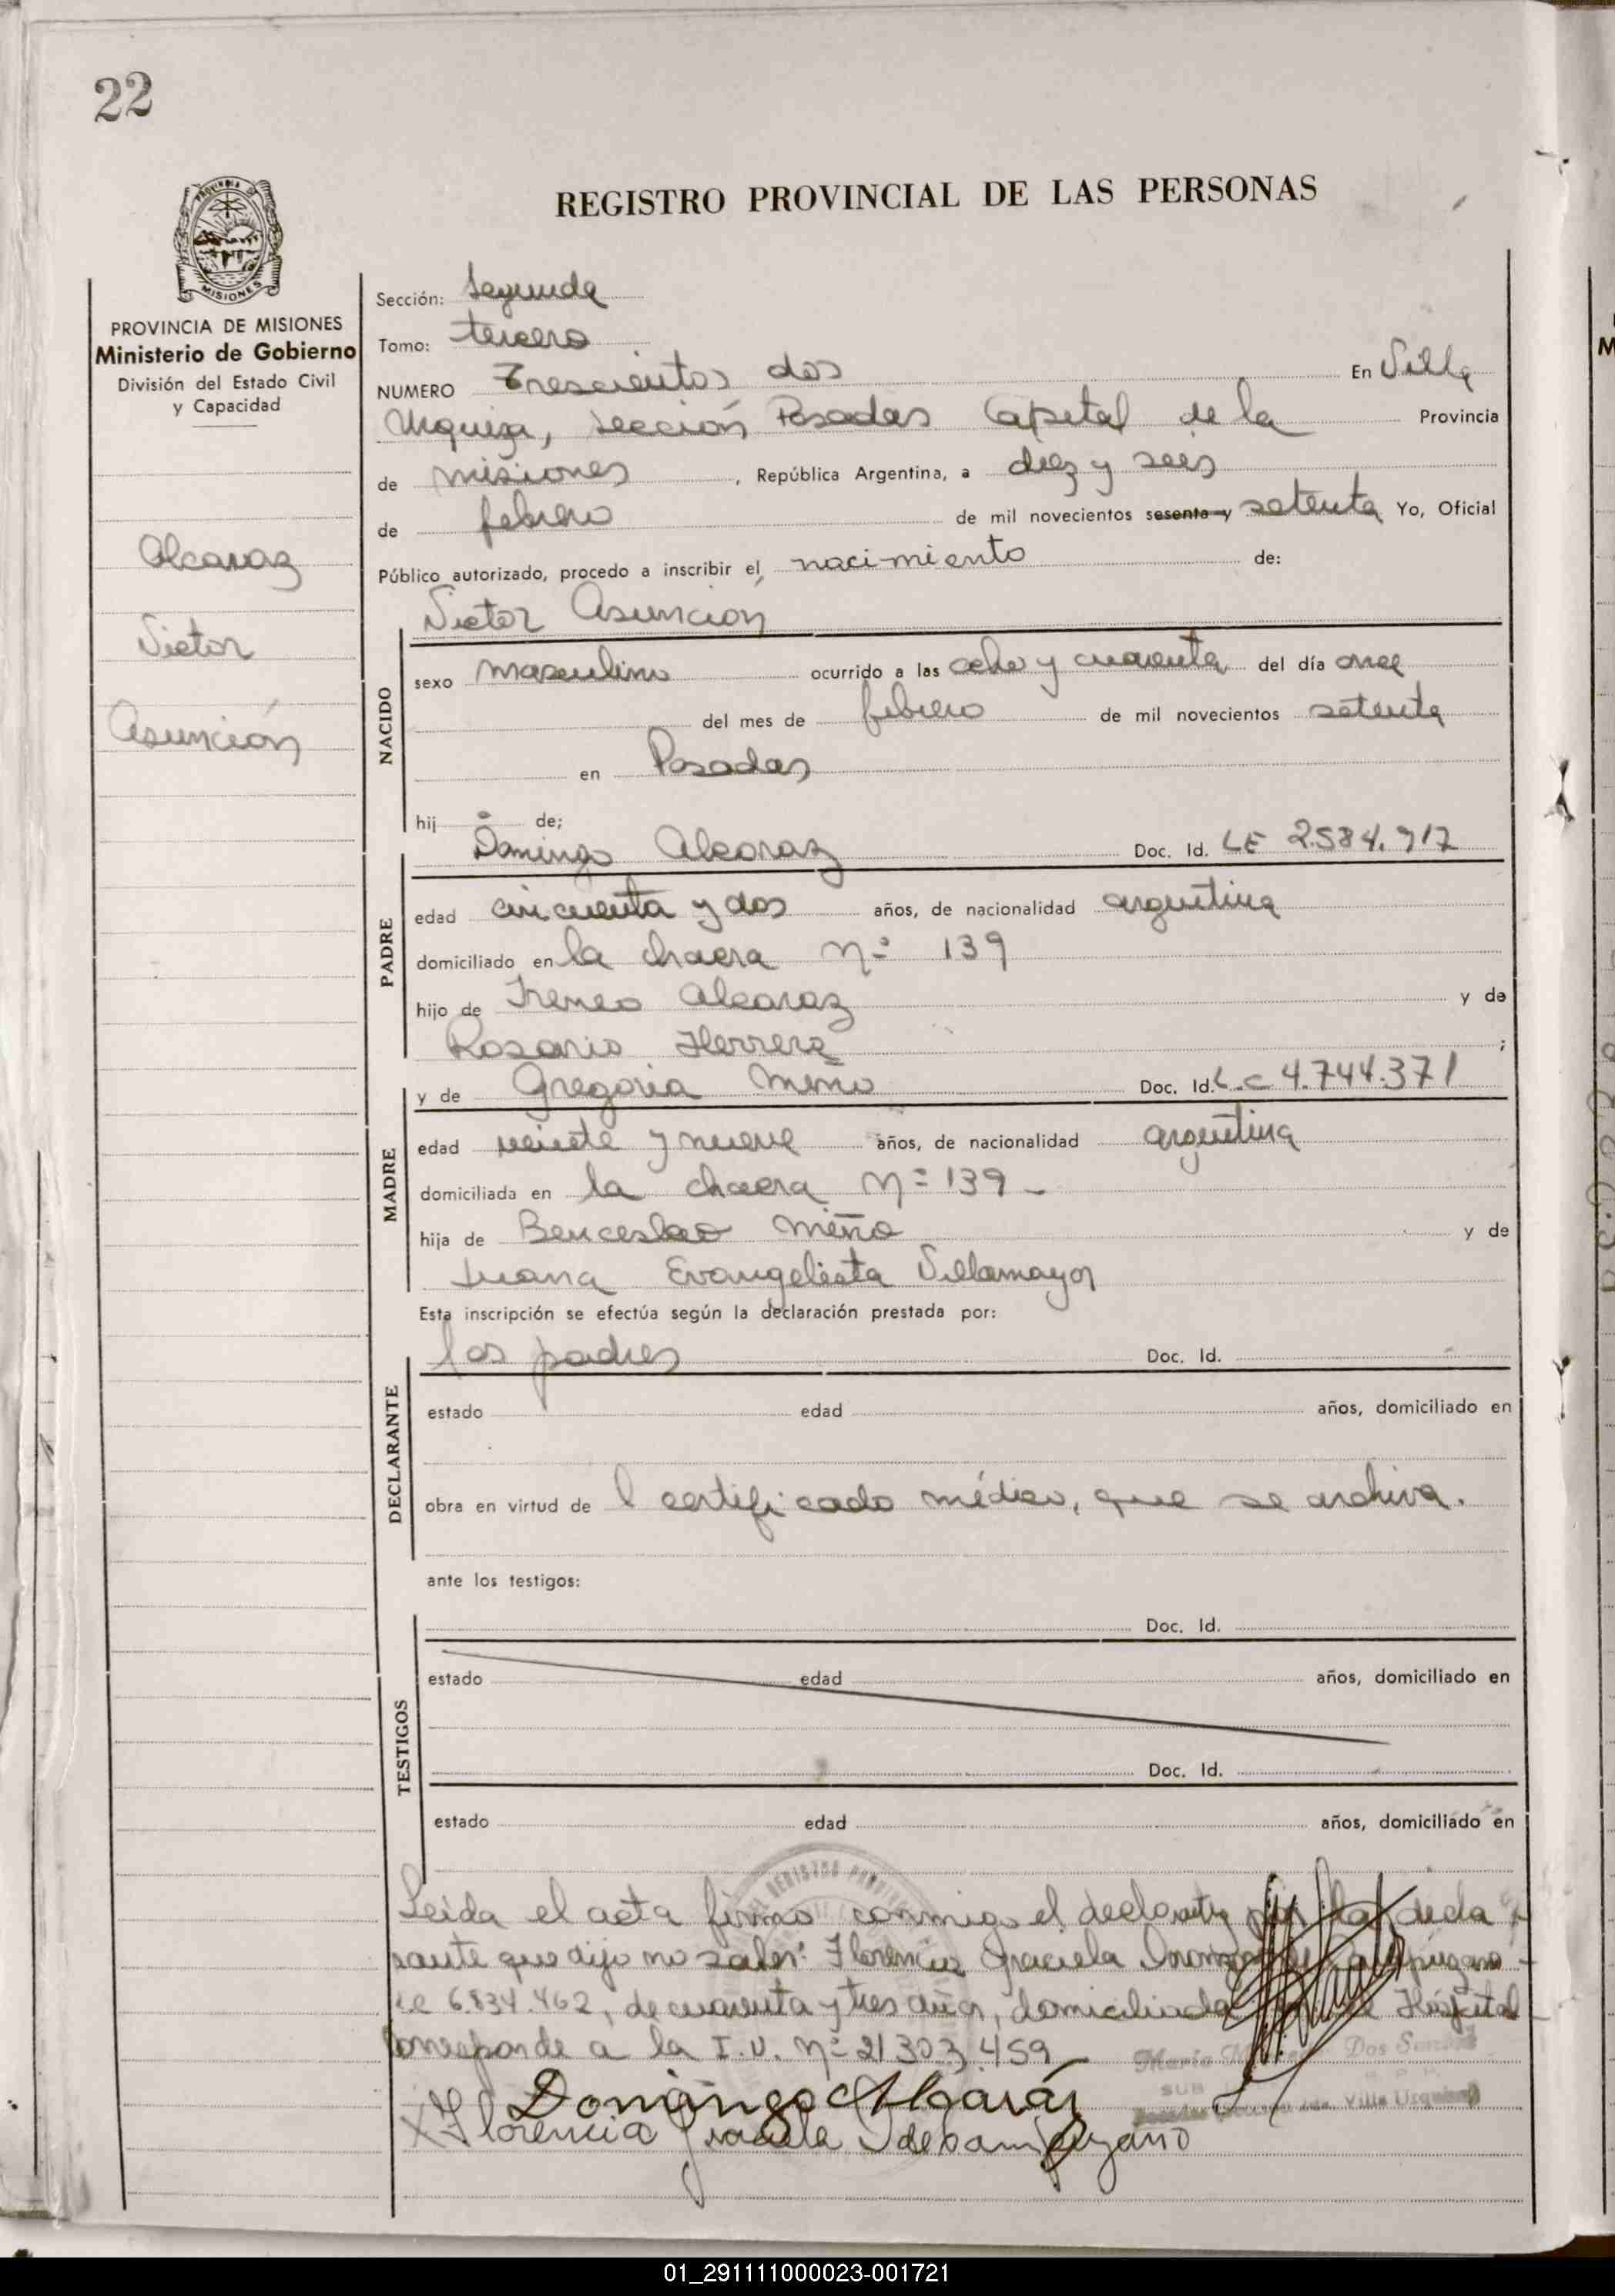 22
REGISTRO PROVINCIAL DE LAS PERSONAS
MISIONES
PROVINCIA DE MISIONES
Ministerio de Gobierno
División del Estado Civil
y Capacidad
Alcaraz
Victor
Asunción
Sección: Segunda
Tomo: tercero
NUMERO Trescientos dos En Villa
Urquiza, sección Posadas Capital de la Provincia
de misiones, República Argentina, a diez y seis
de febrero de mil novecientos sesenta y setenta Yo, Oficial
Público autorizado, procedo a inscribir el nacimiento de:
Victor Asunción
NACIDO
sexo masculino ocurrido a las ocho y cuarenta del día once
del mes de febrero de mil novecientos setenta
en Posadas
hijo de;
Domingo Alcaraz Doc. Id. LE 2.584.917
PADRE
edad cincuenta y dos años, de nacionalidad argentina
domiciliado en la chacra Nº 139
hijo de Ireneo Alcaraz y de
Rosario Herrera ;
y de Gregoria Miño Doc. Id. L.C 4.744.371
MADRE
edad veinte y nueve años, de nacionalidad argentina
domiciliada en la chacra Nº 139 -
hija de Benceslao Miño y de
Juana Evangelista Villamayor
Esta inscripción se efectúa según la declaración prestada por:
los padres Doc. Id.
DECLARANTE
estado edad años, domiciliado en
obra en virtud de l certificado médico, que se archiva.
ante los testigos:
Doc. Id.
TESTIGOS
estado edad años, domiciliado en
Doc. Id.
estado edad años, domiciliado en
Leida el acta firma conmigo el declarante por la decla
rante que dijo no saber: Florencia Graciela de Campuzano
6.834.462, de cuarenta y tres años, domiciliada Hospital
Corresponde a la I.U. Nº 21303.459
Domingo Alcaráz
X Florencia Graciela de Campuzano
Mario Dos Santos
SUB
Villa Urquiza
01_291111000023-001721